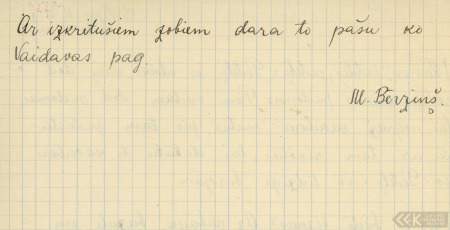 Ar izkritušiem zobiem dara to pašu ko
Vaidavas pag.
M. Bērziņš.